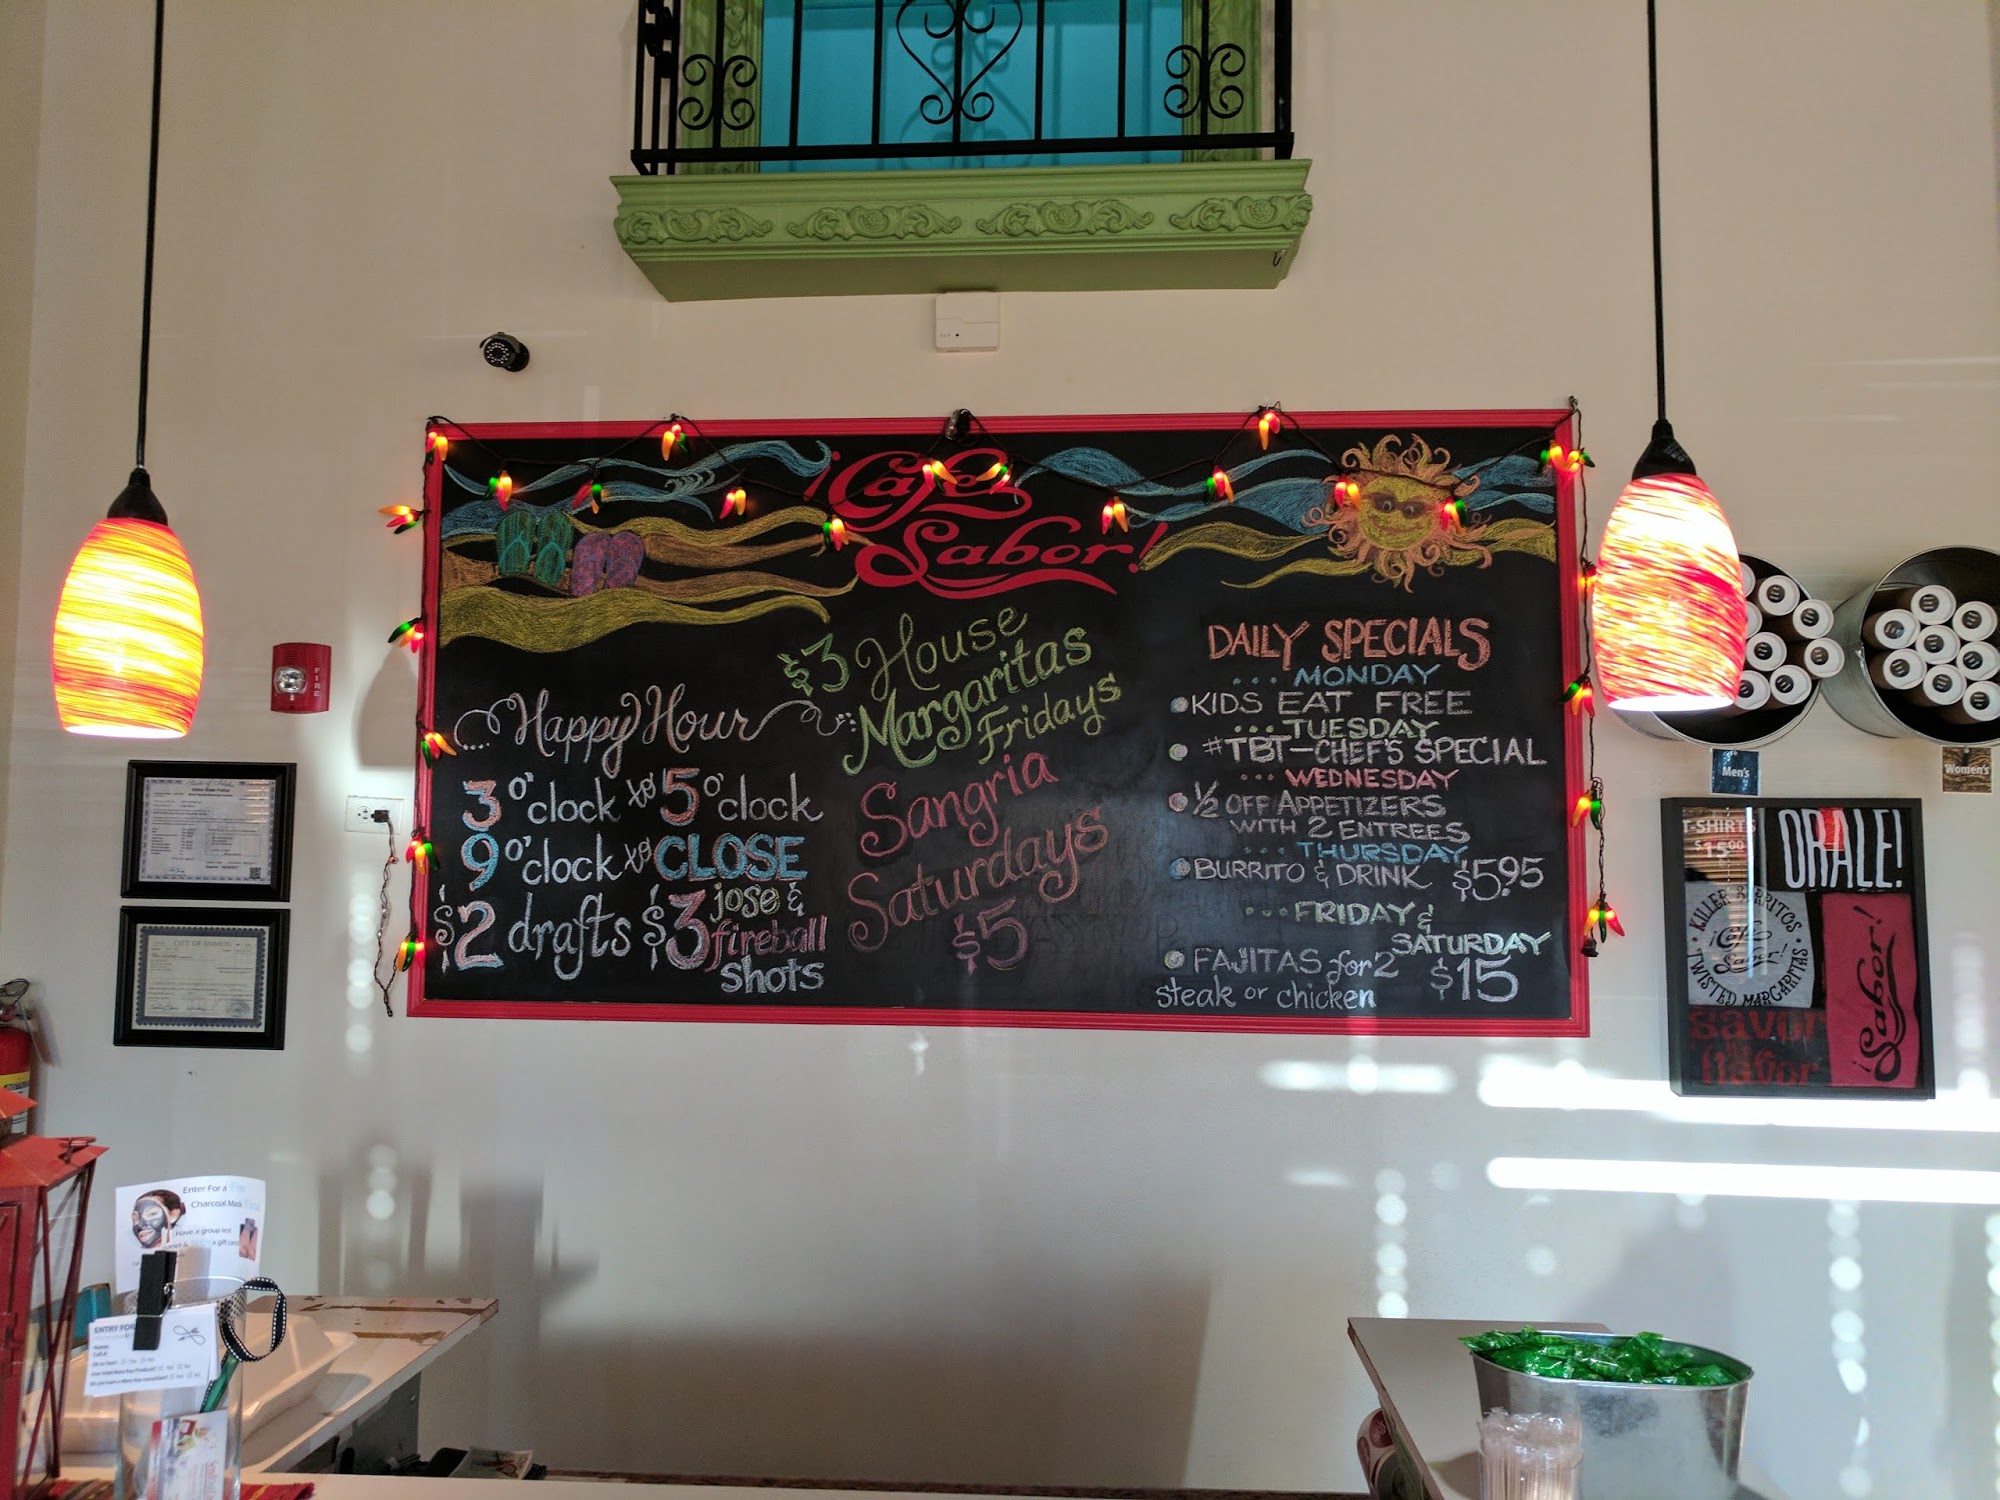 ¡Café
Sabor!
$3 House
Margaritas
Fridays
Sangria
Saturdays
$5
Happy Hour
3 o'clock to 5 o'clock
9 o'clock to CLOSE
$2 drafts $3 jose &
fireball
shots
DAILY SPECIALS
... MONDAY
KIDS EAT FREE
... TUESDAY
#TBT-CHEF'S SPECIAL
... WEDNESDAY
½ OFF APPETIZERS
WITH 2 ENTREES
... THURSDAY
BURRITO & DRINK $5.95
... FRIDAY &
SATURDAY
FAJITAS for 2 $15
steak or chicken
FIRE
CITY OF AMMON
Men's
Women's
T-SHIRTS
$15.00
ORALE!
KILLER BURRITOS
¡Café
Sabor!
TWISTED MARGARITAS
savor
flavor
¡Sabor!
Enter For a
Charcoal Mask
Have a group
a gift card
ENTRY FOR
Name: